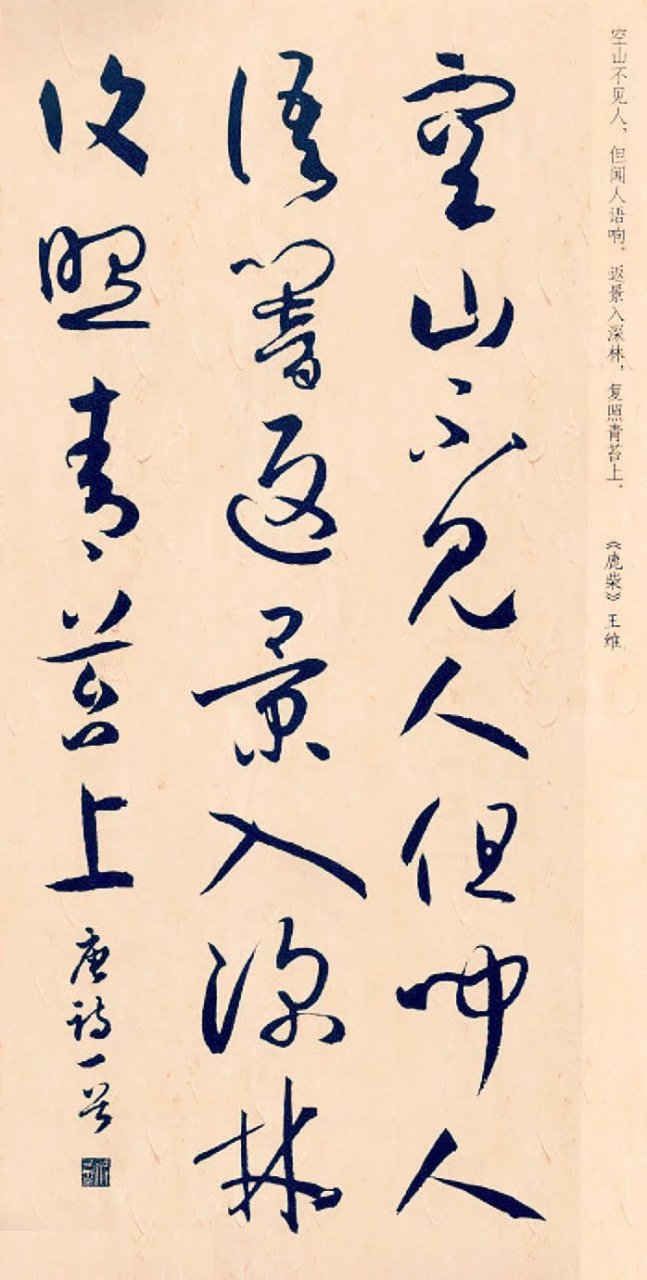 空山不见人，但闻人语响。返景入深林，复照青苔上。
《鹿柴》王维
空山不見人但聞人
語響返景入深林
復照青苔上
唐詩一首